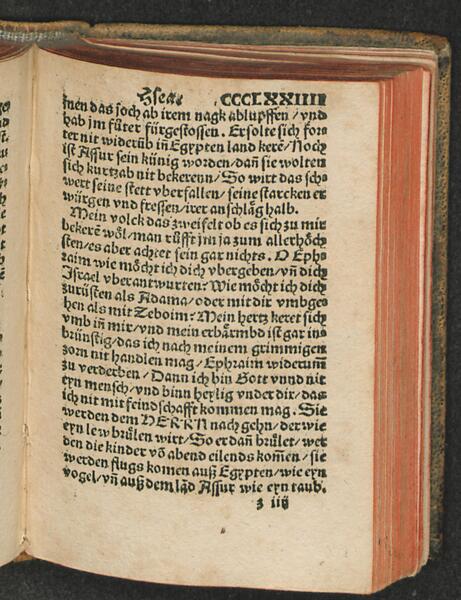 Hsea. CCCLXXIIII
men das soch ab irem nagk ablupffen / vnd
hab jm fůter fürgestossen. Er solte sich for⸗
ter nit widerūb in Egypten land kerē / Noch
ist Assur sein künig worden / dañ sie wolten
sich kurtzab nit bekerenn / So wirt das sch⸗
wert seine stett vberfallen / seine starcken er
würgen vnd fressen / irer anschläg halb.
Mein volck das zweifelt ob es sich zu mir
bekerē wöl / man růfft jm ja zum allerhöch
sten / es aber achtet sein gar nichts. O Eph⸗
raim wie möcht ich dich vbergeben / vñ dich
Israel vberantwurten? Wie möcht ich dich
zurüsten als Adama / oder mit dir vmbge⸗
hen als mit Zeboim? Mein hertz keret sich
vmb iñ mir / vnd mein erbärmbd ist gar in⸗
brünstig / das ich nach meinem grimmigen
zorn nit handlen mag / Ephraim widerum̃
zu verderben / Dann ich bin Gott vnnd nit
eyn mensch / vnd binn heylig vnder dir / das
ich nit mit feindschafft kommen mag. Sie
werden dem HERRN nach gehn / der wie
eyn lew brülen wirt / So er dañ brület / wer
den die kinder vō abend eilends kom̃en / sie
werden flugs komen auß Egypten / wie eyn
vogel / vñ auß dem lād Assur wie eyn taub.
z iiij